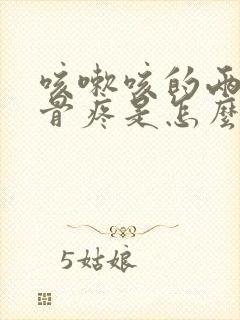 咳嗽咳的两
骨疼是怎麼
5姑娘